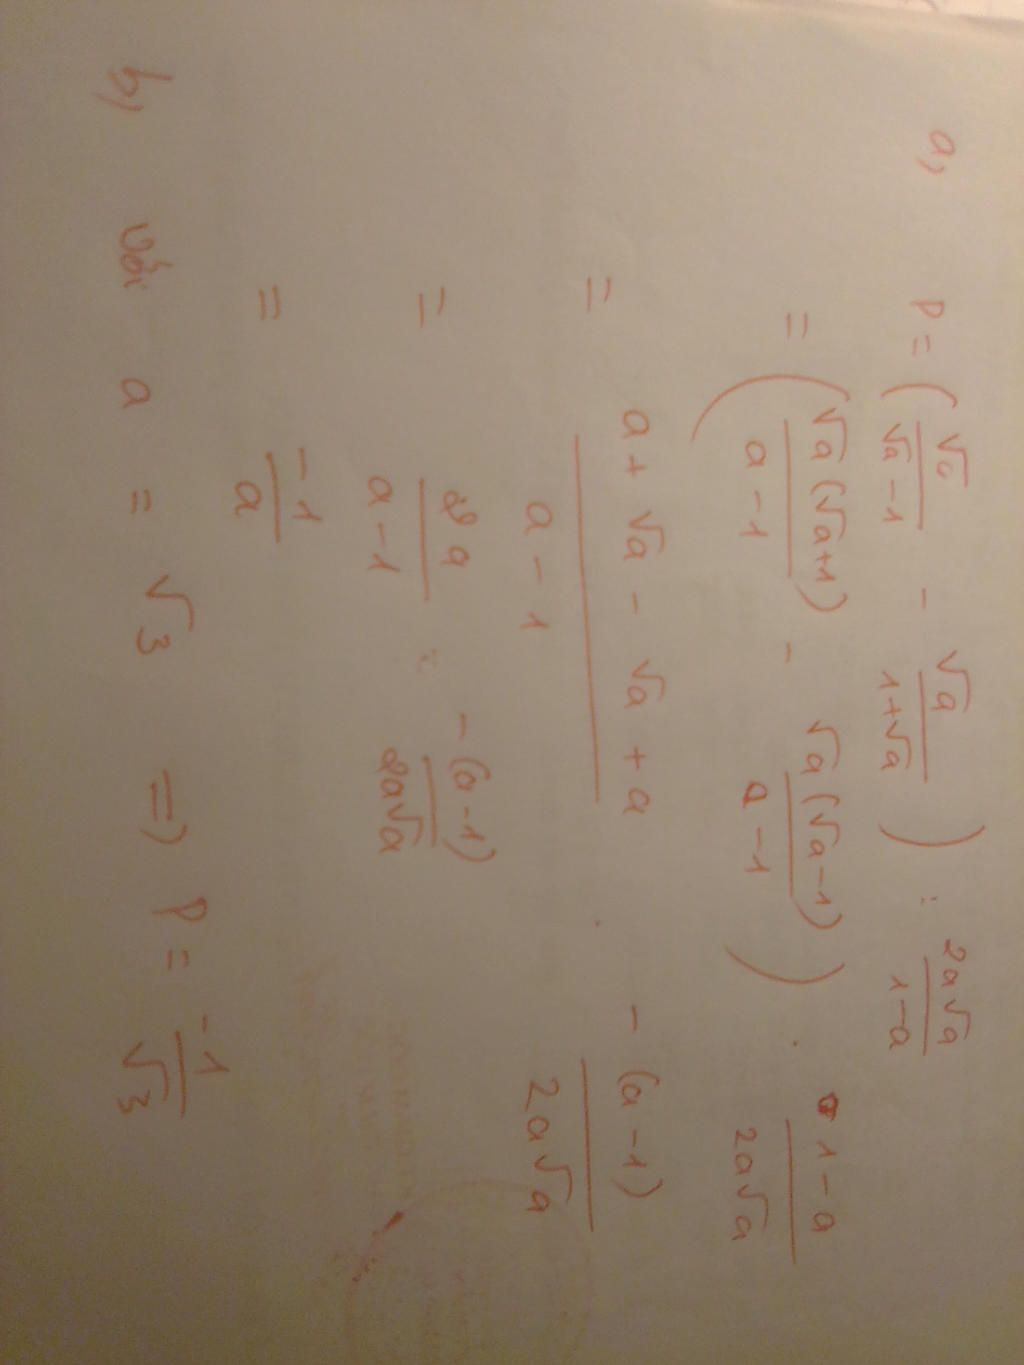 a) P = (√a/(√a - 1) - √a/(1+√a)) : 2a√a/(1-a)
= (√a(√a+1)/(a-1) - √a(√a-1)/(a-1)) . (1-a)/(2a√a)
= (a + √a - √a + a)/(a-1) . -(a-1)/(2a√a)
= 2a/(a-1) . -(a-1)/(2a√a)
= -1/a
b) với a = √3 => P = -1/√3